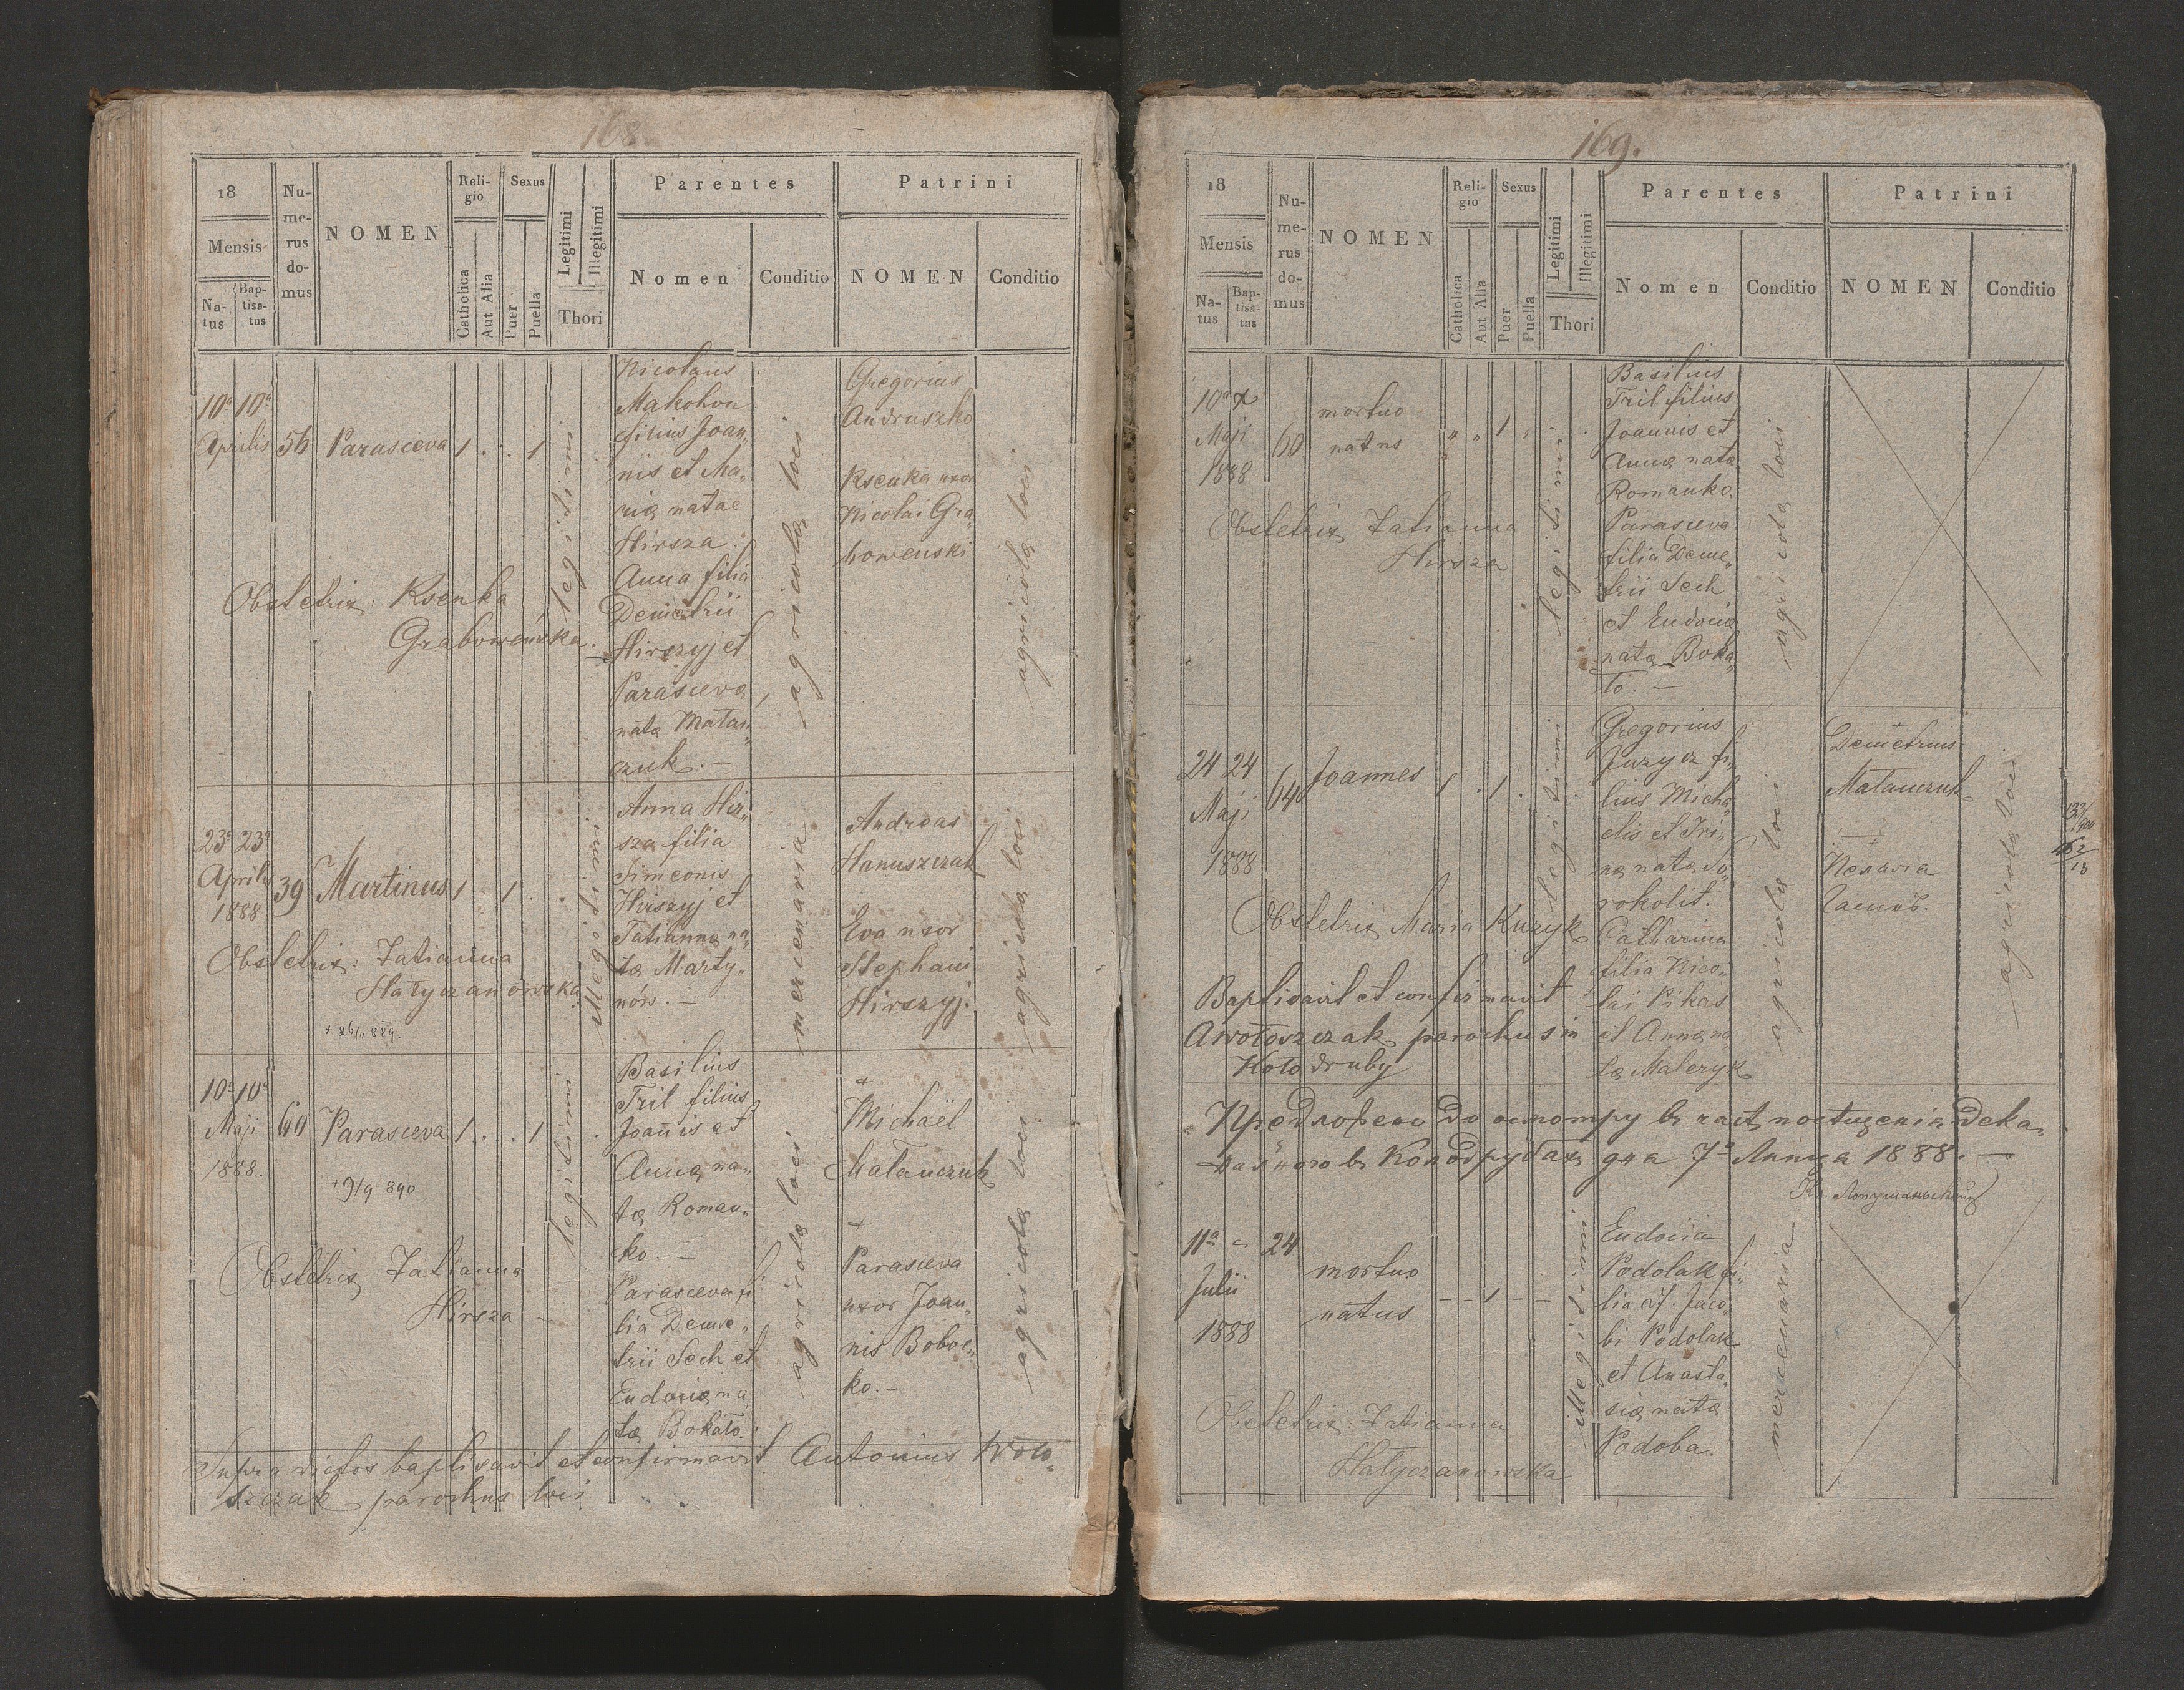 168
18
Mensis
Na-
tus
Bap-
tisa-
tus
Nu-
me-
rus
do-
mus
NOMEN
Reli-
gio
Catholica
Aut Alia
Sexus
Puer
Puella
Legitimi
Illegitimi
Thori
Parentes
Nomen
Conditio
Patrini
NOMEN
Conditio
10a 10a
Aprilis
56
Parasceva
1 . . 1
legitimi
Nicolaus
Makohon
filius Joan„
nis et Ma„
riæ natae
Hirsza.
Anna filia
Demetrii
Hirszyj et
Parascevæ
natæ Matan„
czuk. –
agricolæ loci
Gregorius
Andruszko
Ksenka uxor
Nicolai Gra„
bowenski
agricolæ loci
Obstetrix: Ksenka
Grabowenska.
23a 23a
Aprilis
1888
39
Martinus
1 1
illegitimi
Anna Hir„
sza filia
Simeonis
Hirszyj et
Tatiannæ na„
tæ Marty„
nów. –
mercenaria
Andreas
Hanuszczak
Eva uxor
Stephani
Hirszyj.
agricolæ loci
Obstetrix: Tatianna
Hałyczanowska
10a 10a
Maji
1888.
60
Parasceva
1 . . 1
+ 9/9 890
legitimi
Basilius
Tril filius
Joannis et
Annæ na„
tæ Roman„
ko. –
Parasceva fi„
lia Deme„
trii Sech et
Eudociæ na„
tæ Bokało.
agricolæ loci
+
Michaël
Matanczuk
+
Parasceva
uxor Joan„
nis Bobos„
ko. –
agricolæ loci
Obstetrix Tatianna
Hirsza –
Supra dictos baptisavit et confirmavit Antonius Woło„
szczak parochus loci
169.
18
Mensis
Na-
tus
Bap-
tisa-
tus
Nu-
me-
rus
do-
mus
NOMEN
Reli-
gio
Catholica
Aut Alia
Sexus
Puer
Puella
Legitimi
Illegitimi
Thori
Parentes
Nomen
Conditio
Patrini
NOMEN
Conditio
10a x
Maji
1888
60
mortuo
natus
„ „ 1 „
legitimi
Basilius
Tril filius
Joannis et
Annæ natæ
Romanko.
Parasceva
filia Deme„
trii Sech
et Eudociæ
natæ Boka„
ło. –
agricolæ loci
Obstetrix Tatianna
Hirsza
24 24
Maji
1888
64
Joannes
1 . 1 .
legitimi
Gregorius
fi„
lius Micha„
elis et Iri„
næ natæ So„
rokolit.
Catharina
filia Nico„
lai Pikas
et Annæ na
tæ Maleryk
agricolæ loci
Demetrius
Matanczuk
agricolæ loci
Obstetrix Maria Kuzyk
Baptisavit et confirmavit
A Wołoszczak parochus in
Kołodruby
Предложено до осмотру
Колодрубахъ дня 7а Липця 1888. –
11a –
Julii
1888
24
mortuo
natus
– – 1 – –
illegitimi
Eudocia
Podolak fi„
lia Jaco„
bi Podolak
et Anasta„
siæ natæ
Podoba.
mercenaria
Obstetrix: Tatianna
Hałyczanowska